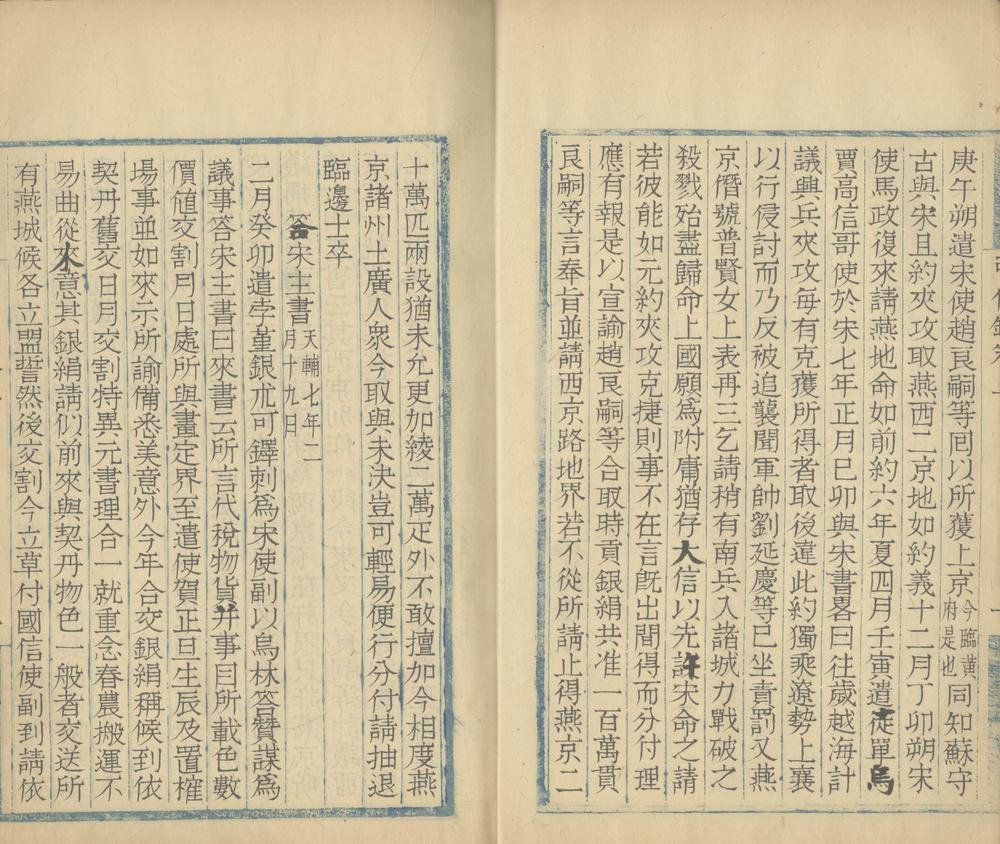 庚午朔遣宋使趙良嗣等囘以所獲上京今臨黄府是也同知蘇守
古與宋且約夾攻取燕西二京地如約義十二月丁卯朔宋
使馬政復來請燕地命如前約六年夏四月壬寅遣徒單烏
賈高信哥使於宋七年正月巳卯與宋書畧曰往歲越海計
議興兵夾攻每有克獲所得者取後違此約獨乘遼勢上襄
以行侵討而乃反被追襲聞軍帥劉延慶等已坐責罰又燕
京僭號普賢女上表再三乞請稍有南兵入諸城力戰破之
殺戮殆盡歸命上國願爲附庸猶存大信以先許宋命之請
若彼能如元約夾攻克捷則事不在言旣出間得而分付理
應有報是以宣諭趙良嗣等合取時貢銀絹共准一百萬貫
良嗣等言奉旨並請西京路地界若不從所請止得燕京二
十萬匹兩設猶未允更加綾二萬疋外不敢擅加今相度燕
京諸州土廣人衆今取與未決豈可輕易便行分付請抽退
臨邊士卒
答宋主書天輔七年二月十九日
二月癸卯遣孛堇銀朮可鐸刺爲宋使副以烏林答贊謀爲
議事答宋主書曰來書云所言代稅物貨并事目所載色數
價値交割月日處所與畫定界至遣使賀正旦生辰及置榷
場事並如來示所諭備悉美意外今年合交銀絹稱候到依
契丹舊交日月交割特異元書理合一就重念春農搬運不
易曲從來意其銀絹請似前來與契丹物色一般者交送所
有燕城候各立盟誓然後交割今立草付國信使副到請依